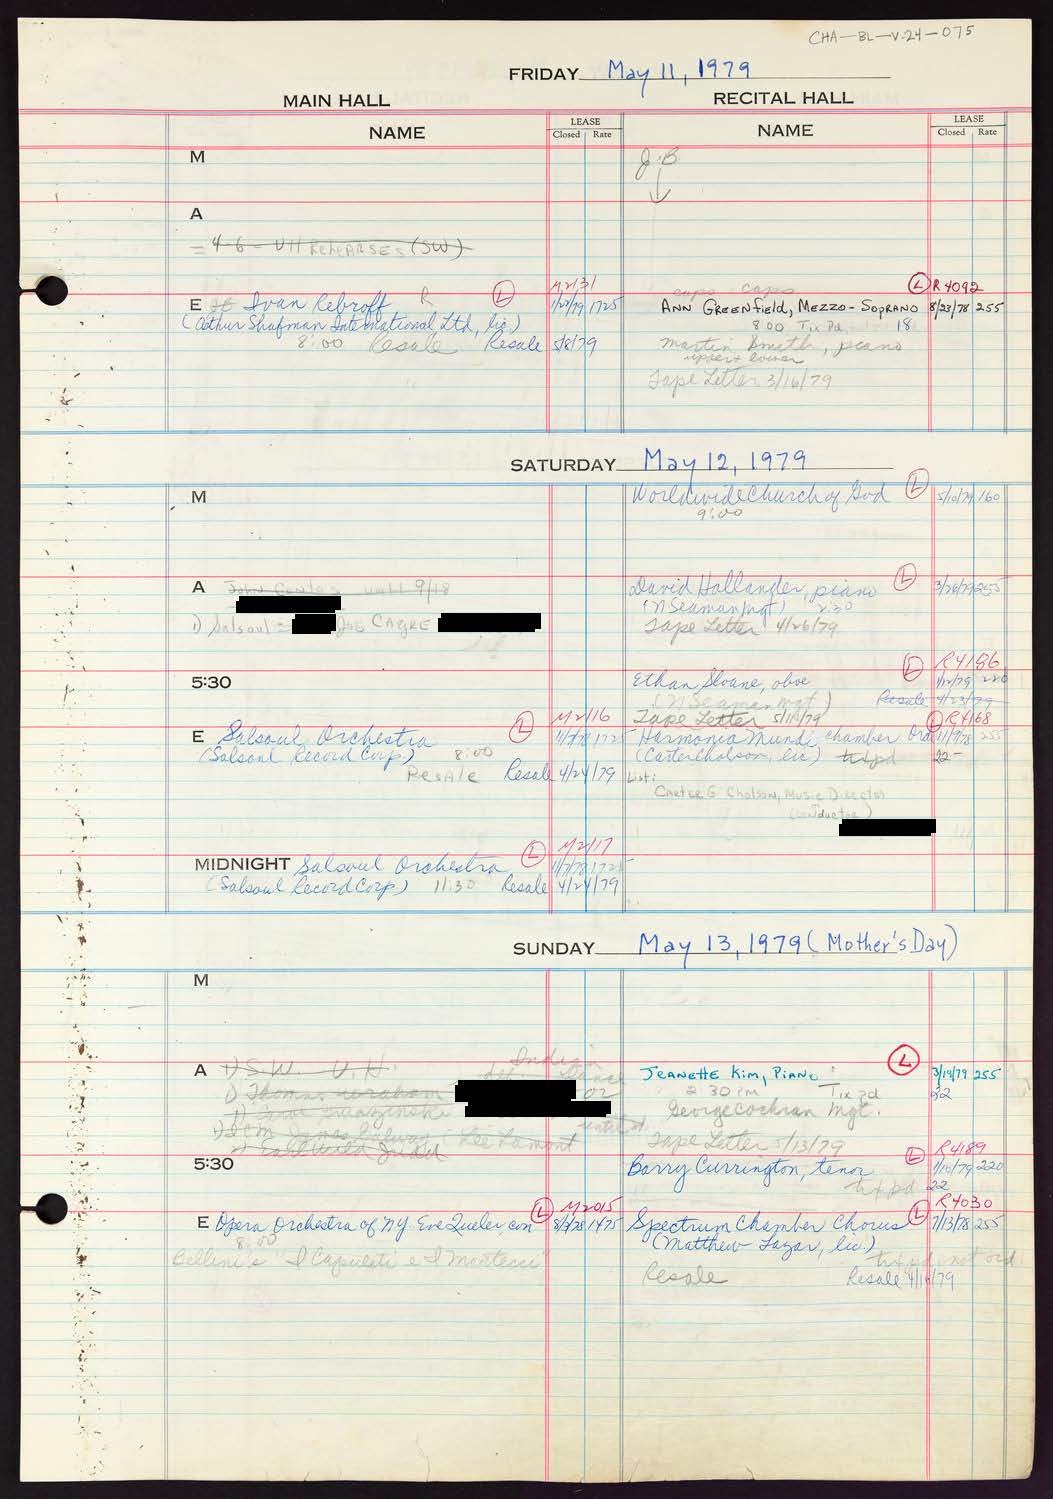 CHA-BL-V.24-075
FRIDAY May 11, 1979
MAIN HALL
RECITAL HALL
NAME
LEASE
Closed Rate
NAME
LEASE
Closed Rate
M
J.B.
A
4-6 - UH REHEARSES (SW)
M2131
L
E Ivan Rebroff R 1/27/79 1725
(Arthur Shafman International Ltd, lic.)
8:00 Resale Resale 5/8/79
L R4092
caps caps
ANN GREENFIELD, MEZZO-SOPRANO 8/23/78 255
8:00 Tix Pd 18
Martin Smith, piano
upper + lower
Tape Letter 3/16/79
SATURDAY May 12, 1979
M
Worldwide Church of God L 5/10/79 160
9:00
A
until 9/18
1) Salsoul = JOE CAYRE
David Hollander, piano L 3/26/79 255
(N Seaman Mgt) 2:30
Tape Letter 4/26/79
5:30
R4186
L
Ethan Sloane, oboe 1/12/79 220
(N Seaman Mgt) Resale 4/23/79
Tape Letter 5/11/79
L M2116
E Salsoul Orchestra 11/7/78 1725
(Salsoul Record Corp.) 8:00
Resale Resale 4/24/79
L R4168
Harmonia Mundi chamber Orch 11/9/78 255
(Carter Cholson, lic) tix pd 22-
List:
CARTER G CHOLSON, MUSIC DIRECTOR
(conductor)
L M2117
MIDNIGHT Salsoul Orchestra 11/7/78 1725
(Salsoul Record Corp) 11:30 Resale 4/24/79
SUNDAY May 13, 1979 (Mother's Day)
M
A 1) S.W. U.H.
Indian
Dance
1) Thomas or
Lee Lamont
L
JEANETTE KIM, PIANO 3/19/79 255
2:30 PM Tix pd 22
George Cochran Mgt.
Tape Letter 5/13/79
5:30
L R4189
Barry Currington, tenor 1/10/79 220
tix pd 22
L M2015
E Opera Orchestra of NY. Eve Queler, con 8/3/78 1475
8:00
Bellini's "I Capuleti e I Montecci"
L R4030
Spectrum Chamber Chorus 7/13/78 255
(Matthew Lazar, lic.)
tix pd, not ord.
Resale Resale 4/16/79